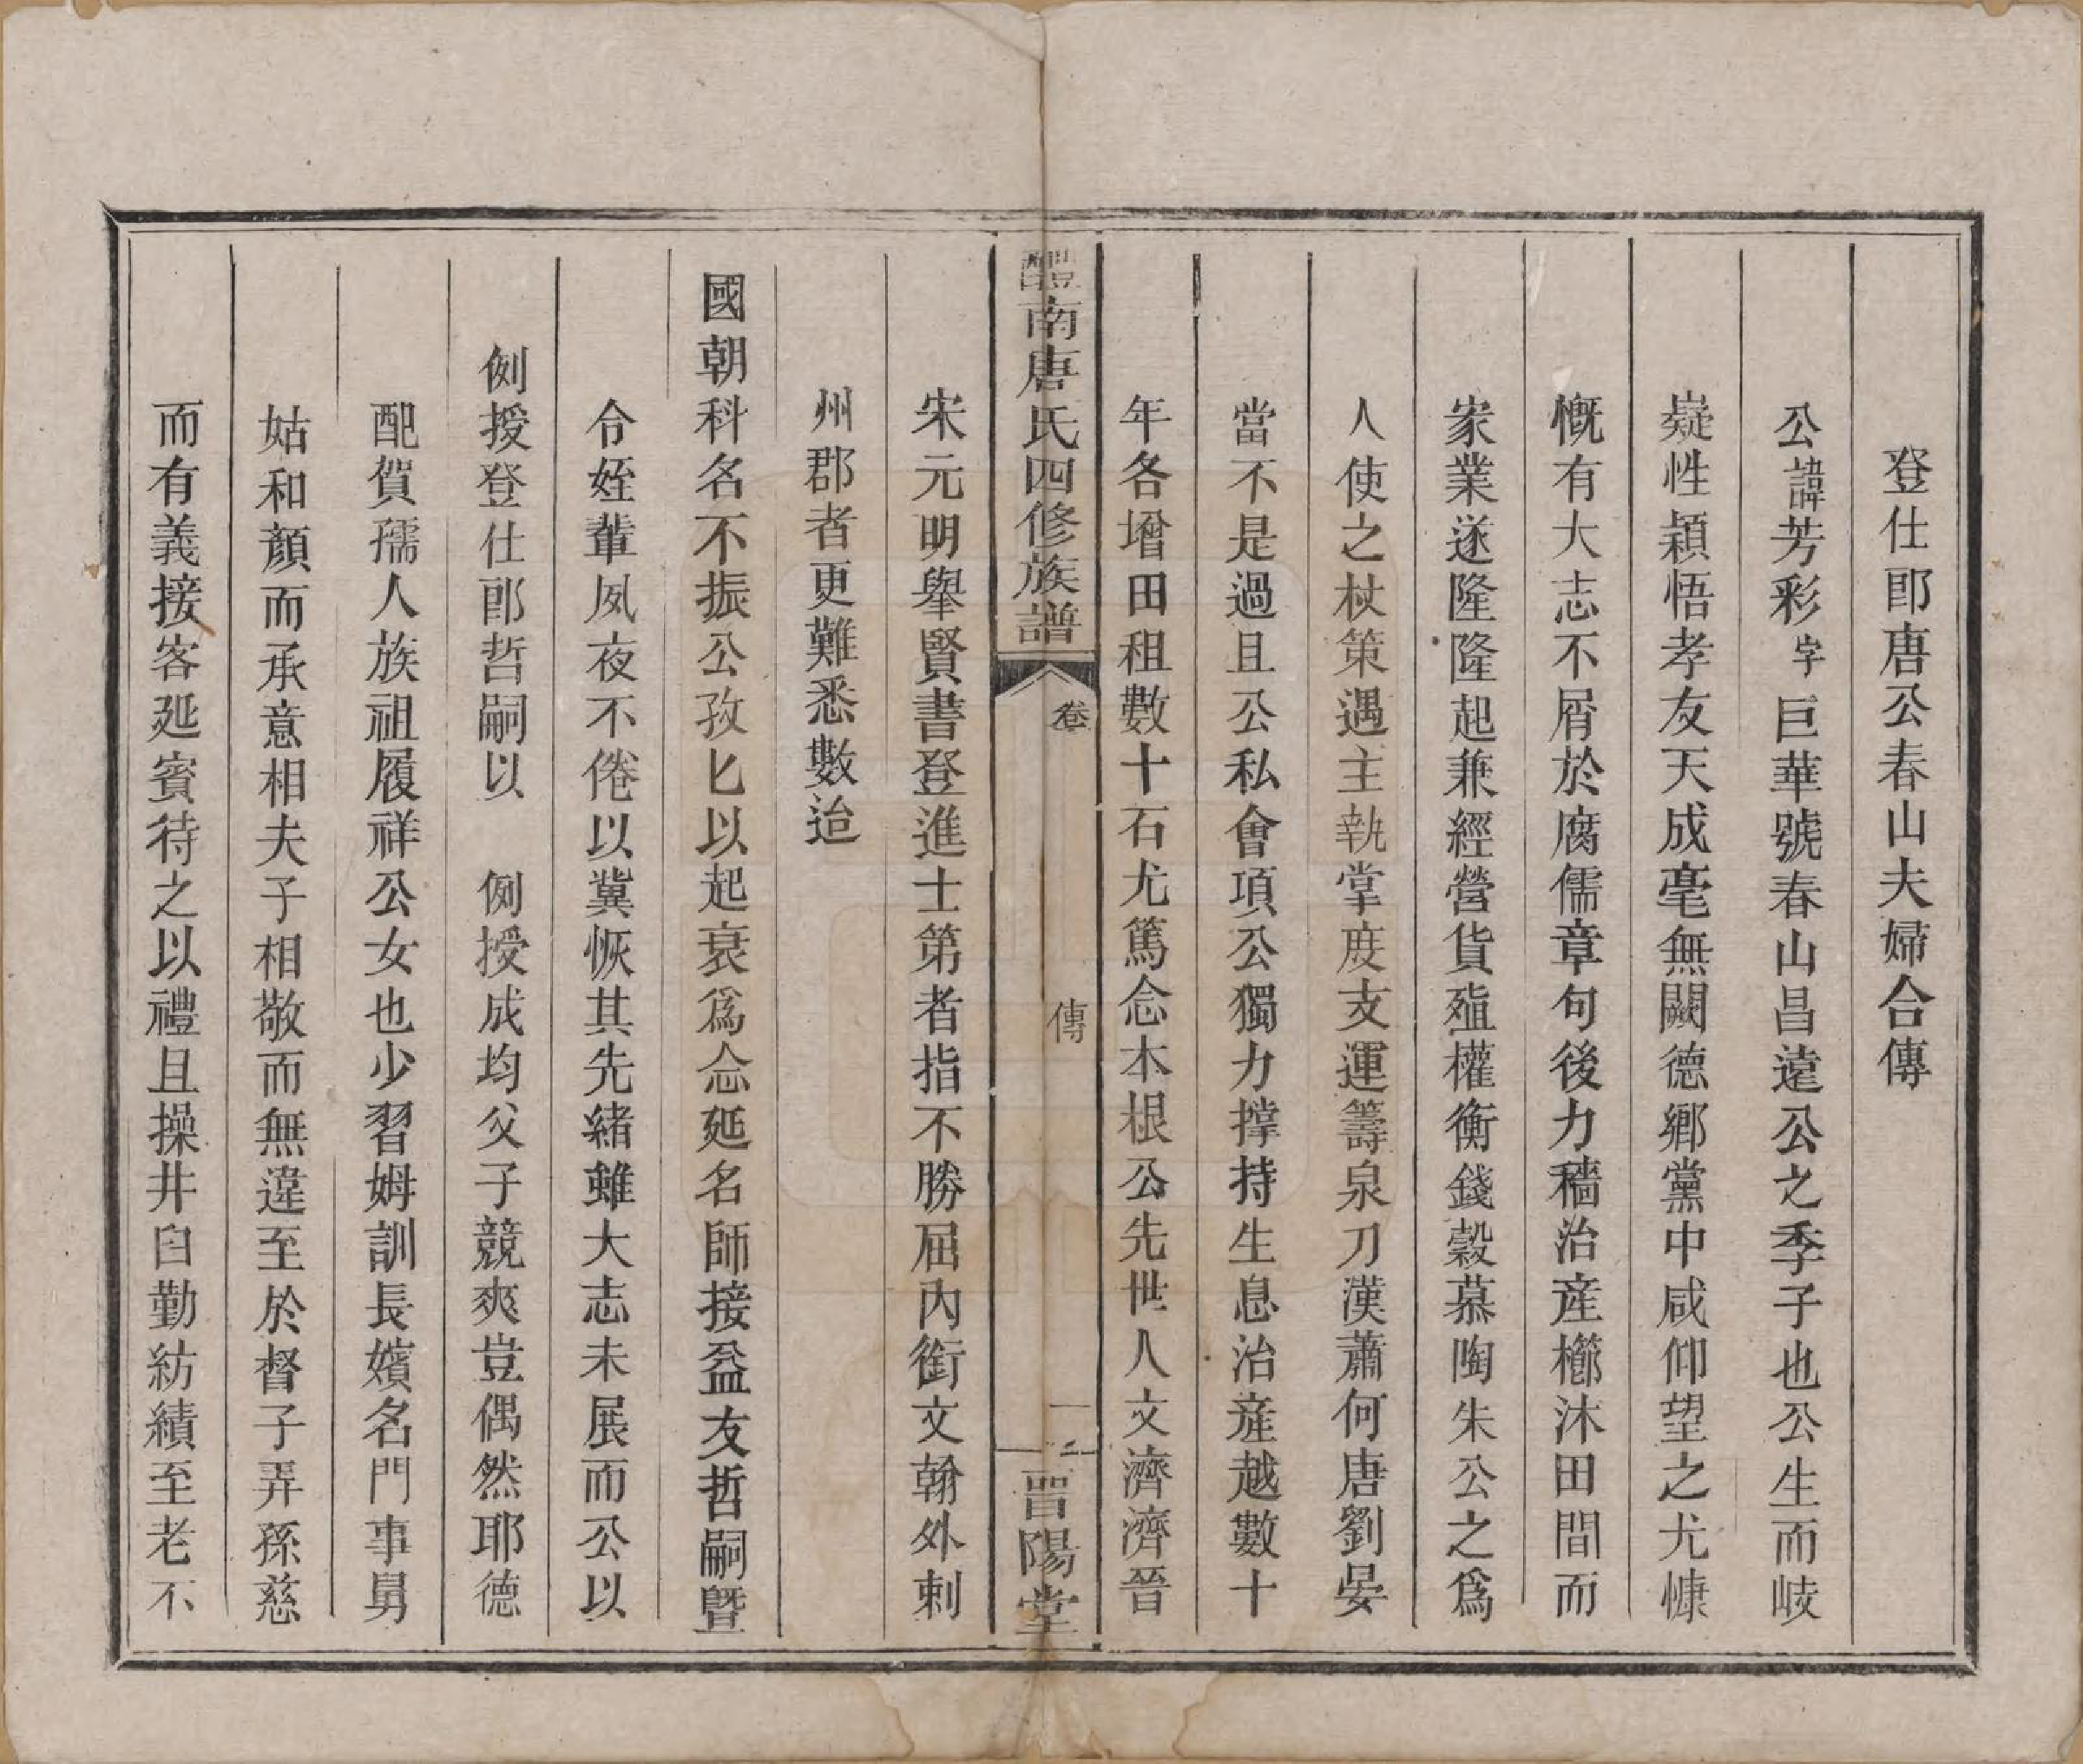 登仕郎唐公春山夫婦合傳
公諱芳彩字巨華號春山昌遠公之季子也公生而岐
嶷性穎悟孝友天成毫無闕德鄉黨中咸仰望之尤慷
慨有大志不屑於腐儒章句後力穡治産櫛沐田間而
家業遂隆隆起兼經營貨殖權衡錢穀慕陶朱公之爲
人使之杖策遇主執掌度支運籌泉刀漢蕭何唐劉晏
當不是過且公私會項公獨力撐持生息治産越數十
年各增田租數十石尤篤念木根公先世人文濟濟晉
醴南唐氏四修族譜
卷
傳
一
晉陽堂
宋元明舉賢書登進士第者指不勝屈內銜文翰外剌
州郡者更難悉數迨
國朝科名不振公孜匕以起衰爲念延名師接益友哲嗣曁
令姪輩夙夜不倦以冀恢其先緒雖大志未展而公以
例援登仕郎哲嗣以 例授成均父子競爽豈偶然耶德
配賀孺人族祖履祥公女也少習姆訓長嬪名門事舅
姑和顏而承意相夫子相敬而無違至於督子弄孫慈
而有義接客延賓待之以禮且操井臼勤紡績至老不